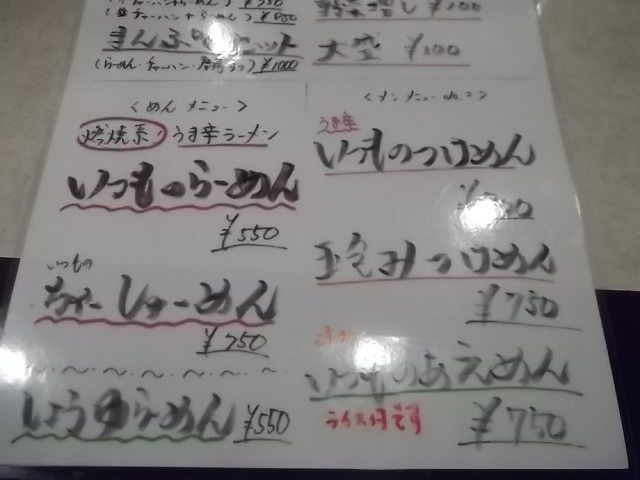 (半チャーハン+らーめん) ¥850
まんぷくセット
(らーめん・チャーハン・) ¥1000
野菜増し ¥100
大盛 ¥100
<めんメニュー>
燃焼系! うま辛ラーメン
いつものらーめん
¥550
いつもの
ちゃーしゅーめん
¥750
しょうゆらーめん ¥550
<メンメニュー No.2>
うま辛
いつものつけめん
玉ねぎみそつけめん
¥750
いつものあえめん
ライス付です
¥750